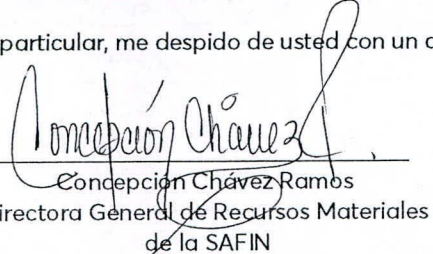 particular, me despido de usted con un
Concepción Chávez
Concepción Chávez Ramos
irectora General de Recursos Materiales
de la SAFIN